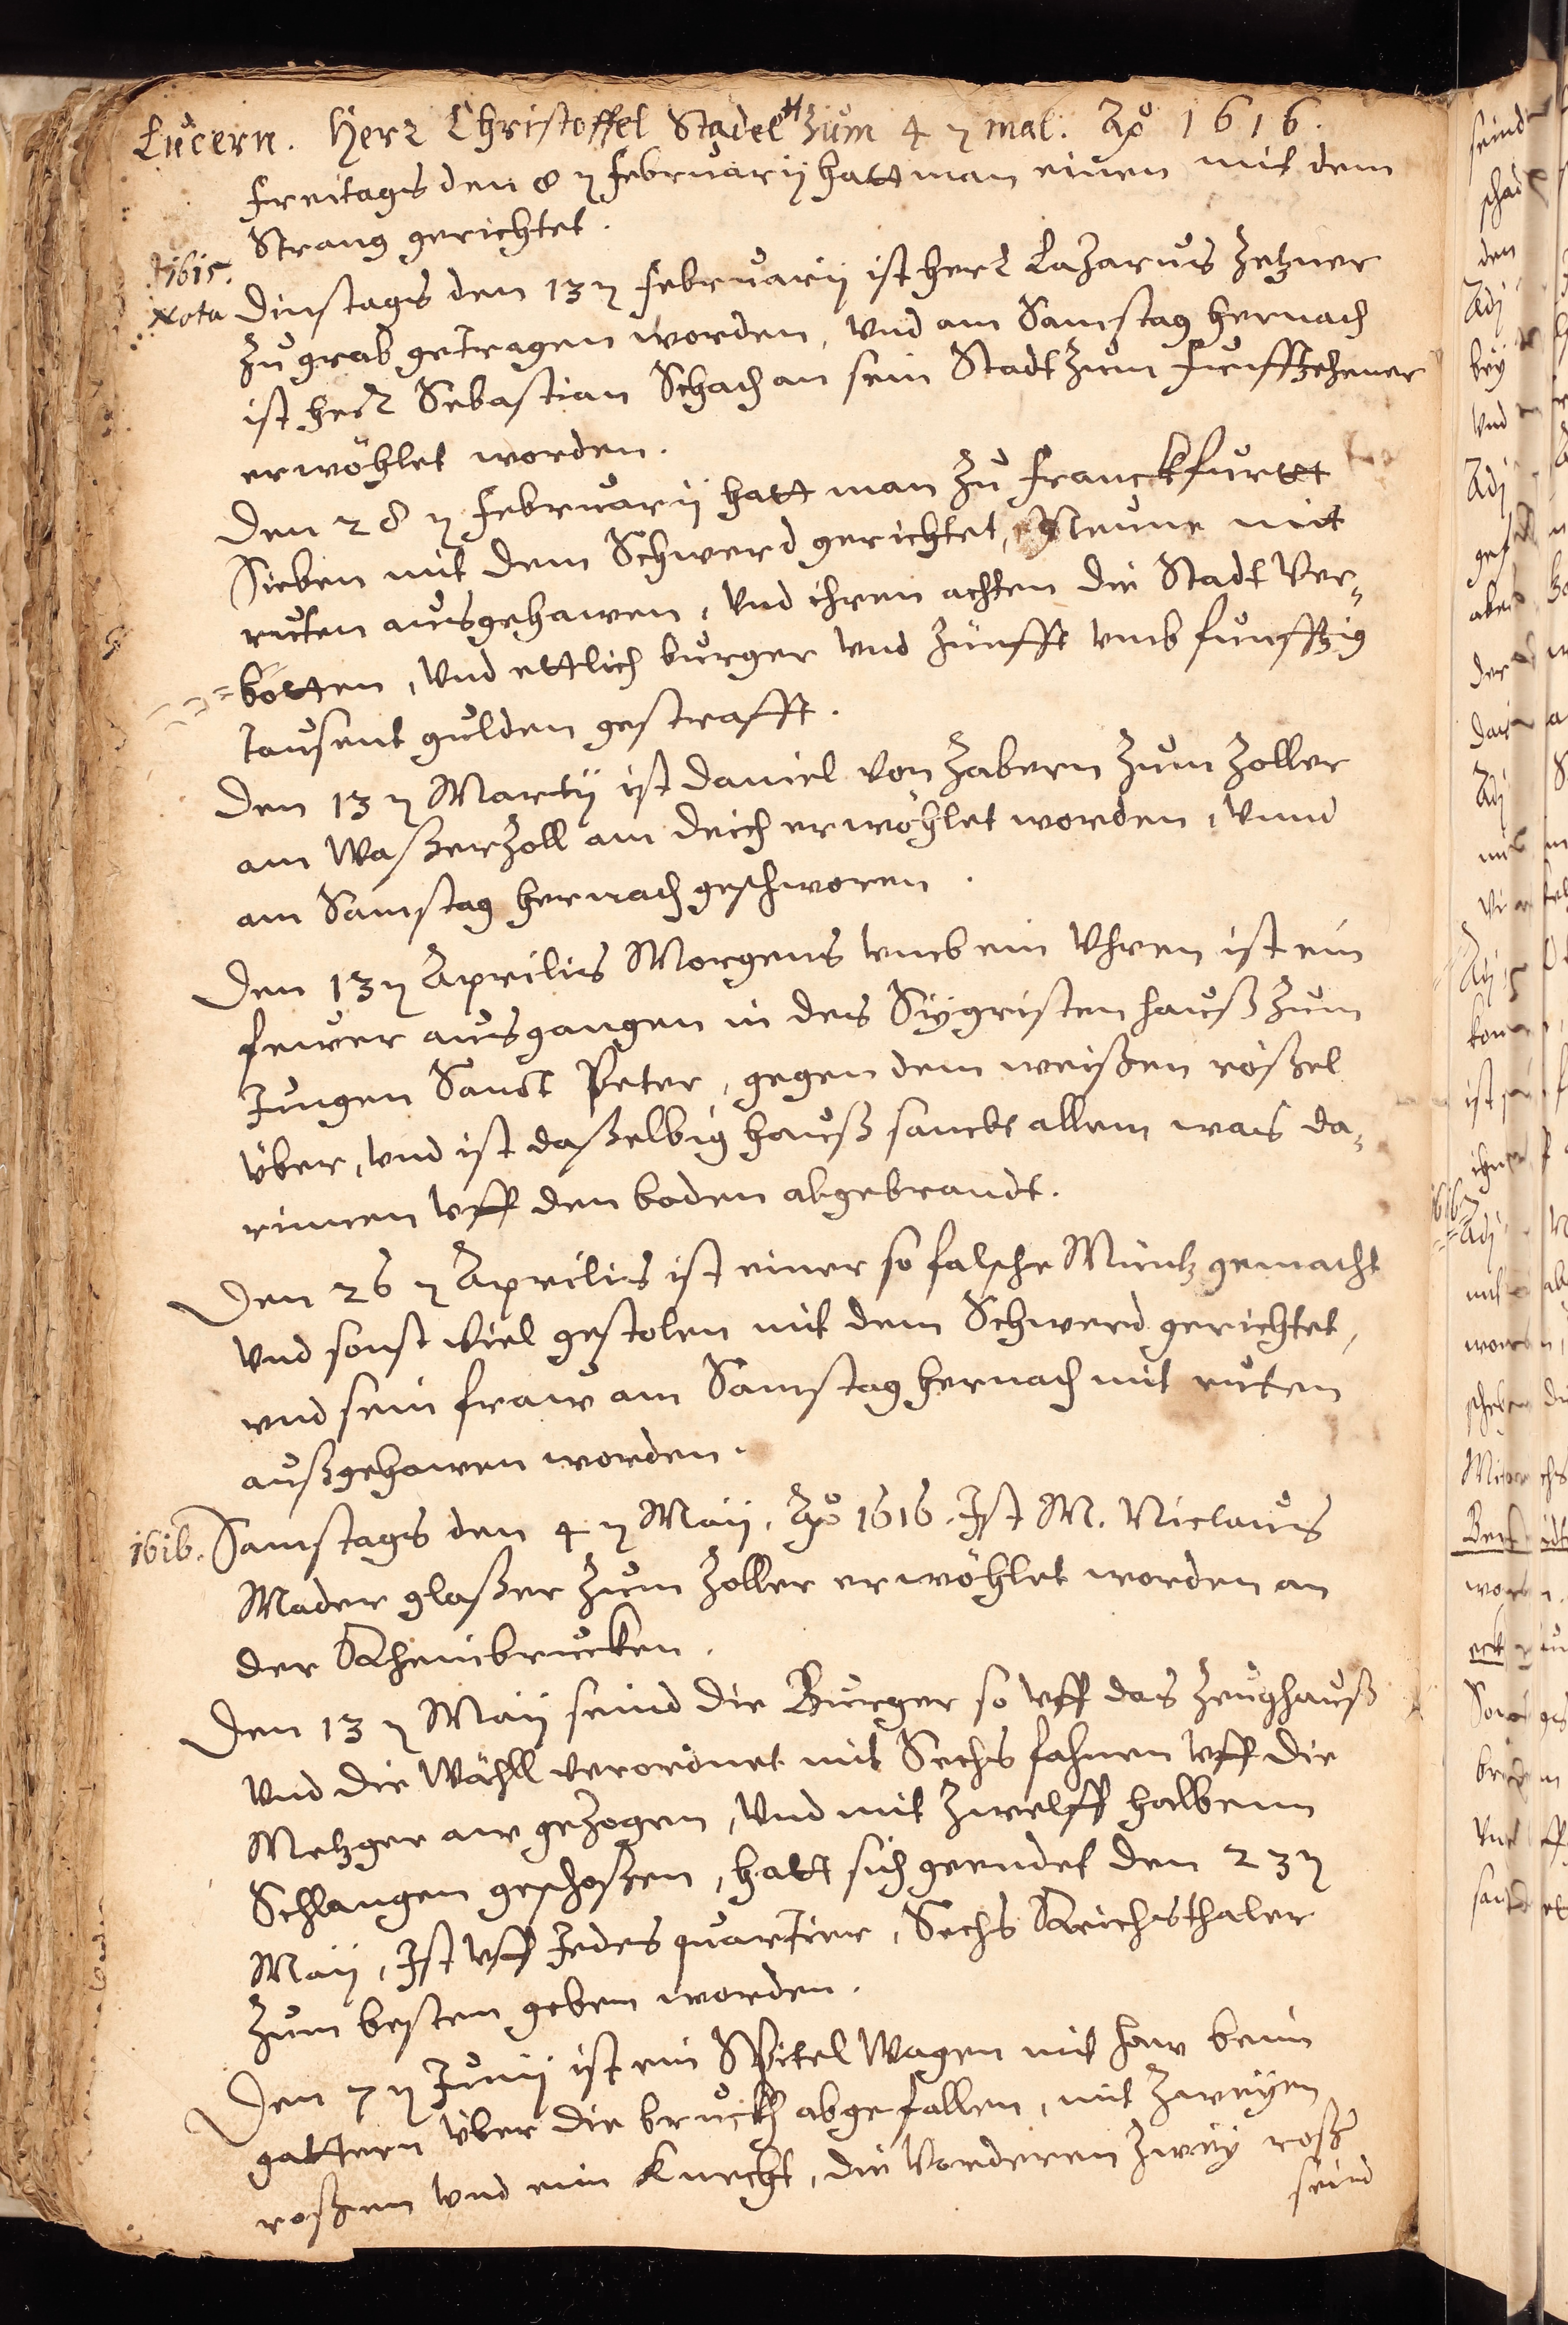 Lucern. Herr Christoffel Städel zum 4 ten mal. Ao 1616.
Freitags den 8 ten Februarij hatt man einen mit dem
Strang gerichtet.
1615.
Nota
Dinstags den 13 ten Februarij ist herr Lazarus Zetzner
zu grab getragen worden, vnd am Samstag hernach
ist herr Sebastian Schach an sein Stadt zum Funffzehener
erwöhlet worden.
Den 28 ten Februarij hatt man zu Franckfurtt
Sieben mit dem Schwerd gerichtet, Neune mit
ruten ausgehawen, vnd ihren achten die Stadt Ver-
botten, vnd ettlich burger vnd Zünfft vmb funffzig
tausent gulden gestrafft.
Den 13 ten Martij ist Daniel von Zabern zum Zoller
am Waßerzoll am deich erwöhlet worden, vnnd
am Samstag hernach geschworen.
Den 13 ten Aprilis Morgens vmb ein Vhren ist ein
fewer ausgangen in des Sygristen hauß zum
Jungen Sanct Peter, gegen dem weißen rößel
über, vnd ist daßelbig hauß sambt allem was da-
rinnen vff den boden abgebrandt.
Den 26 ten Aprilis ist einer so falsche Müntz gemacht
vnd sonst viel gestolen mit dem Schwerd gerichtet,
vnd sein fraw am Samstag hernach mit ruten
außgehawen worden.
1616. Samstags den 4 ten Maij. Ao 1616. Ist M. Niclaus
Mader glaßer zum Zoller erwöhlet worden an
der Rheinbrucken.
Den 13 ten Maij seind die Burger so vff das Zeughauß
vnd die Wähll verordnet mit Sechs fahnen vff die
Metzger aw gezogen, vnd mit zwelff halbenn
Schlangen geschoßen, hatt sich geendet den 23 ten
Maij, Ist vff Jedes quartier, Sechs Reichsthaler
zum besten geben worden.
Den 7 ten Junij ist ein Spitel Wagen mit haw beim
gattern über die bruckh abgefallen, mit zweyen
roßen vnd ein Knecht, die Vorderen zwey roß
seind